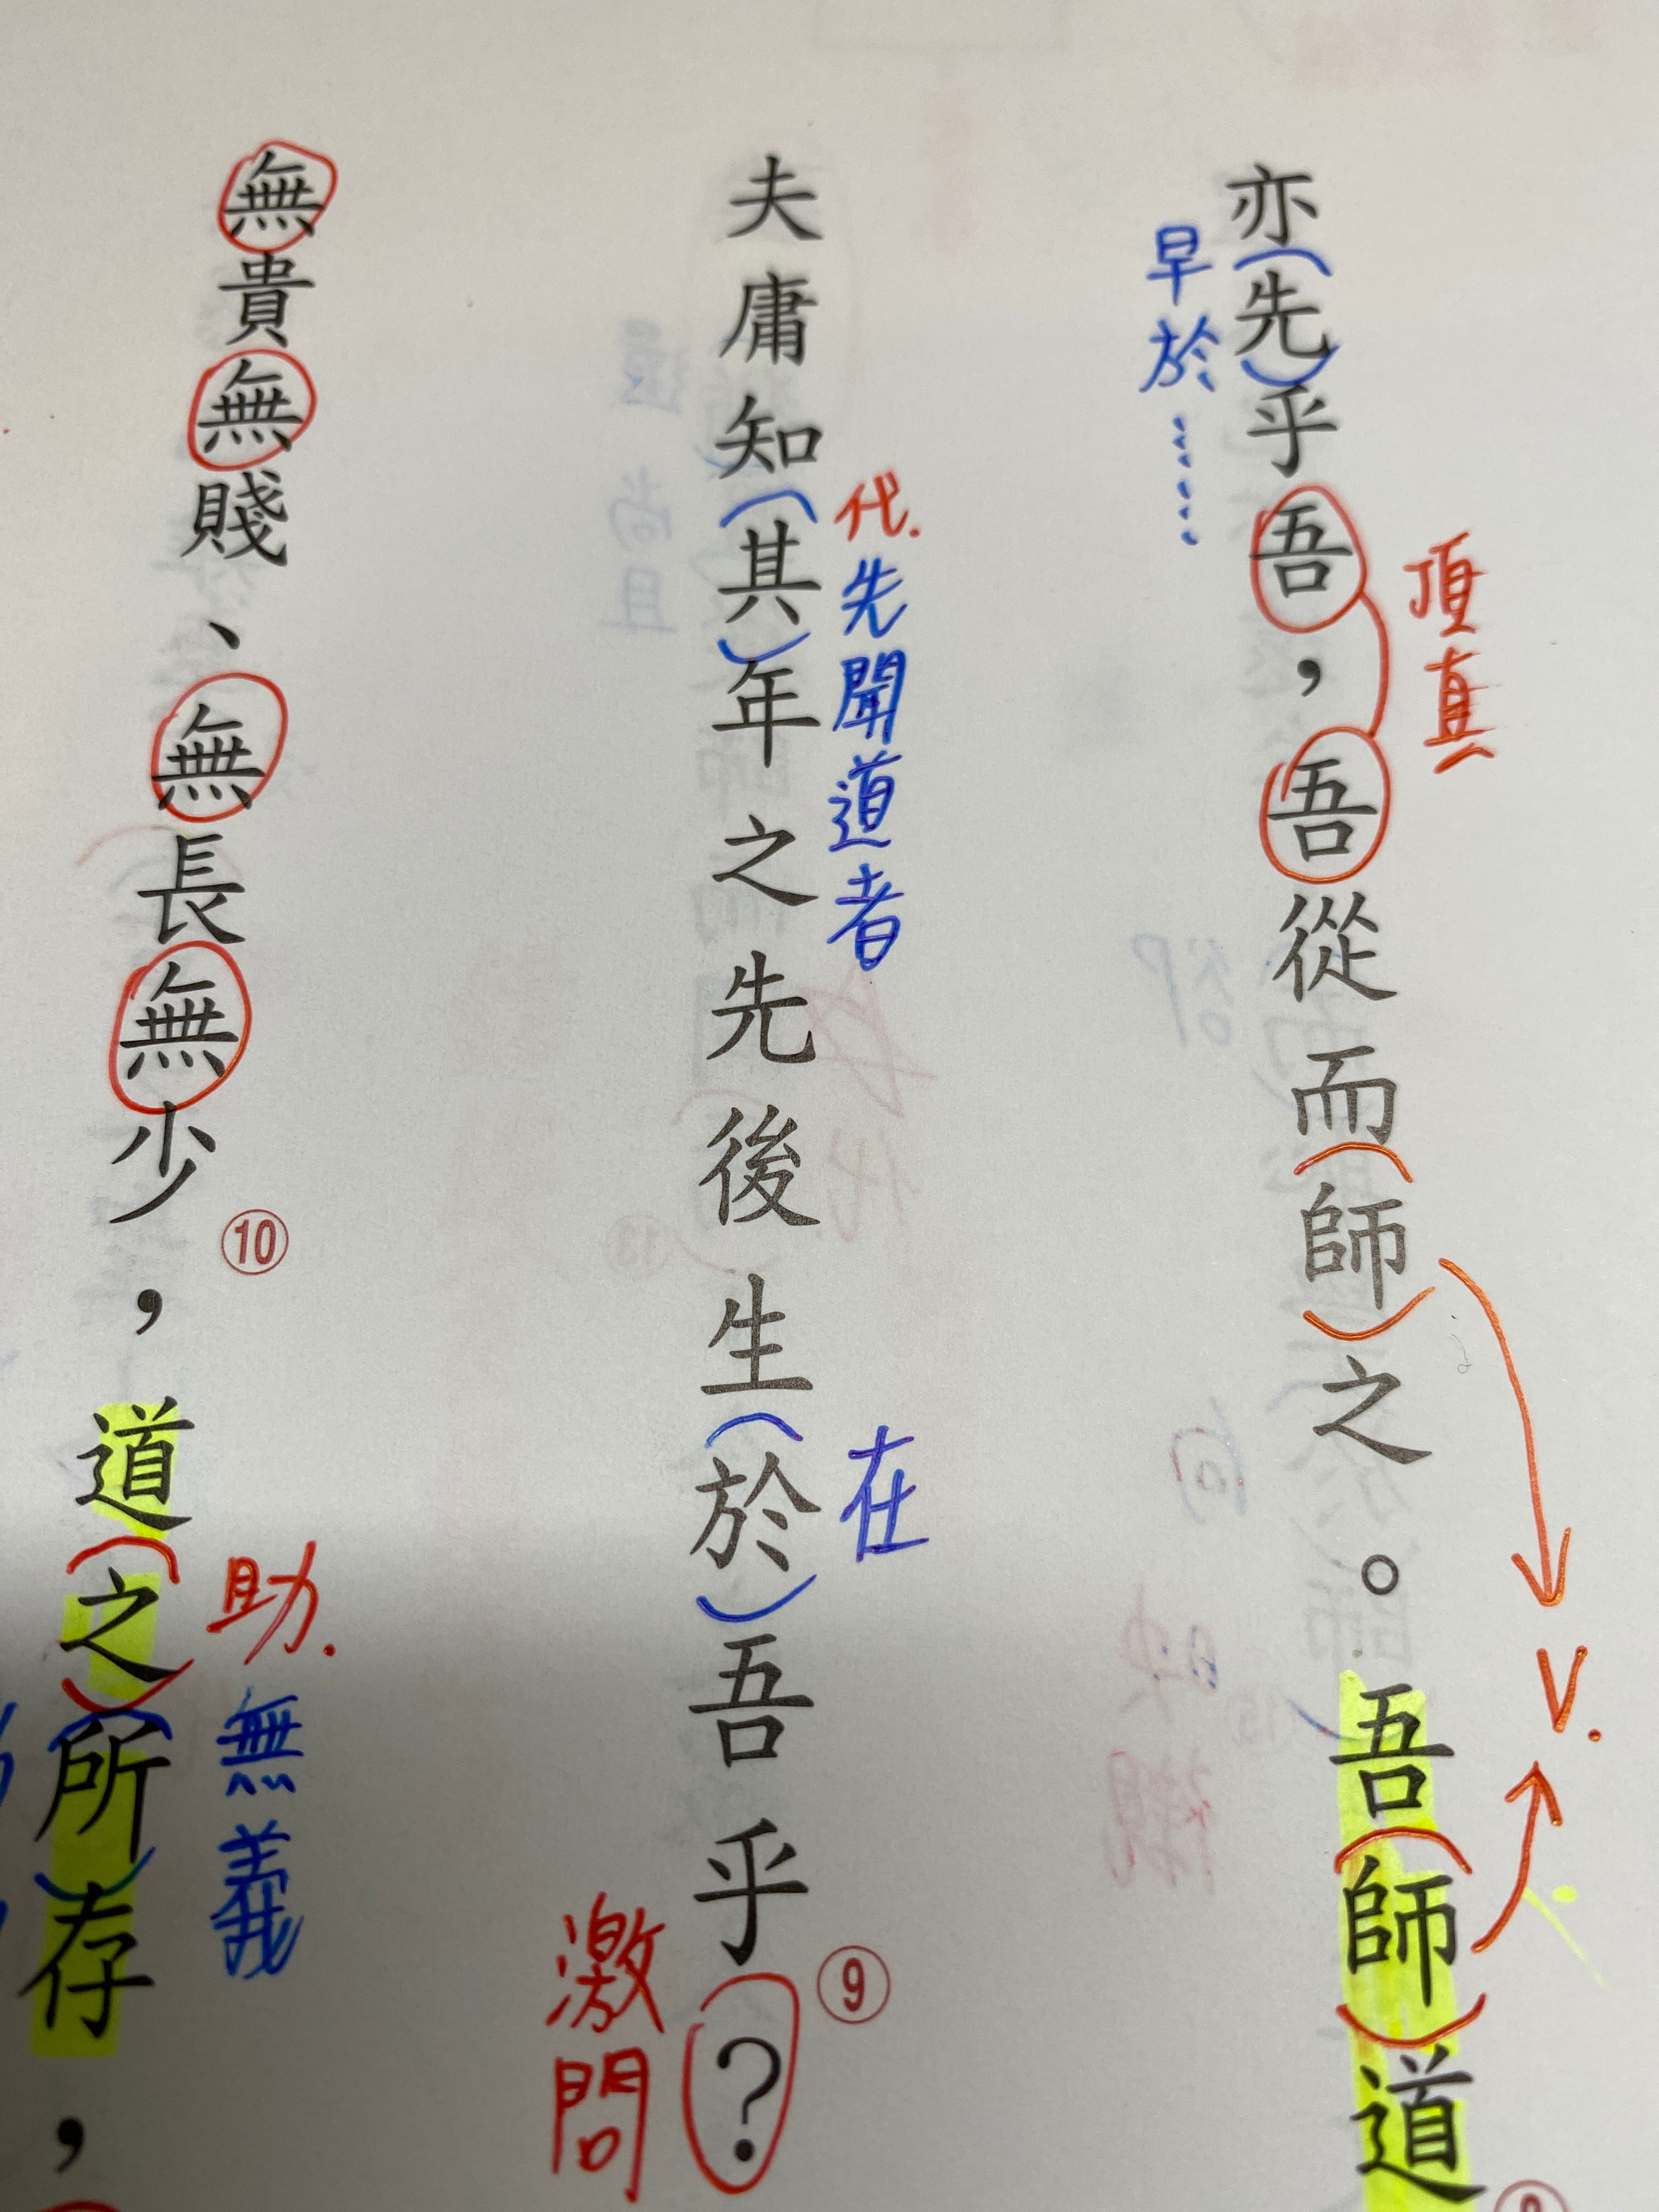 亦(先)乎吾，吾從而(師)之。吾(師)道
頂真
v.
早於……
夫庸知(其)年之先後生(於)吾乎？⑨
代.先聞道者
在
激問
無貴無賤、無長無少⑩，道(之)(所)存，
助.無義